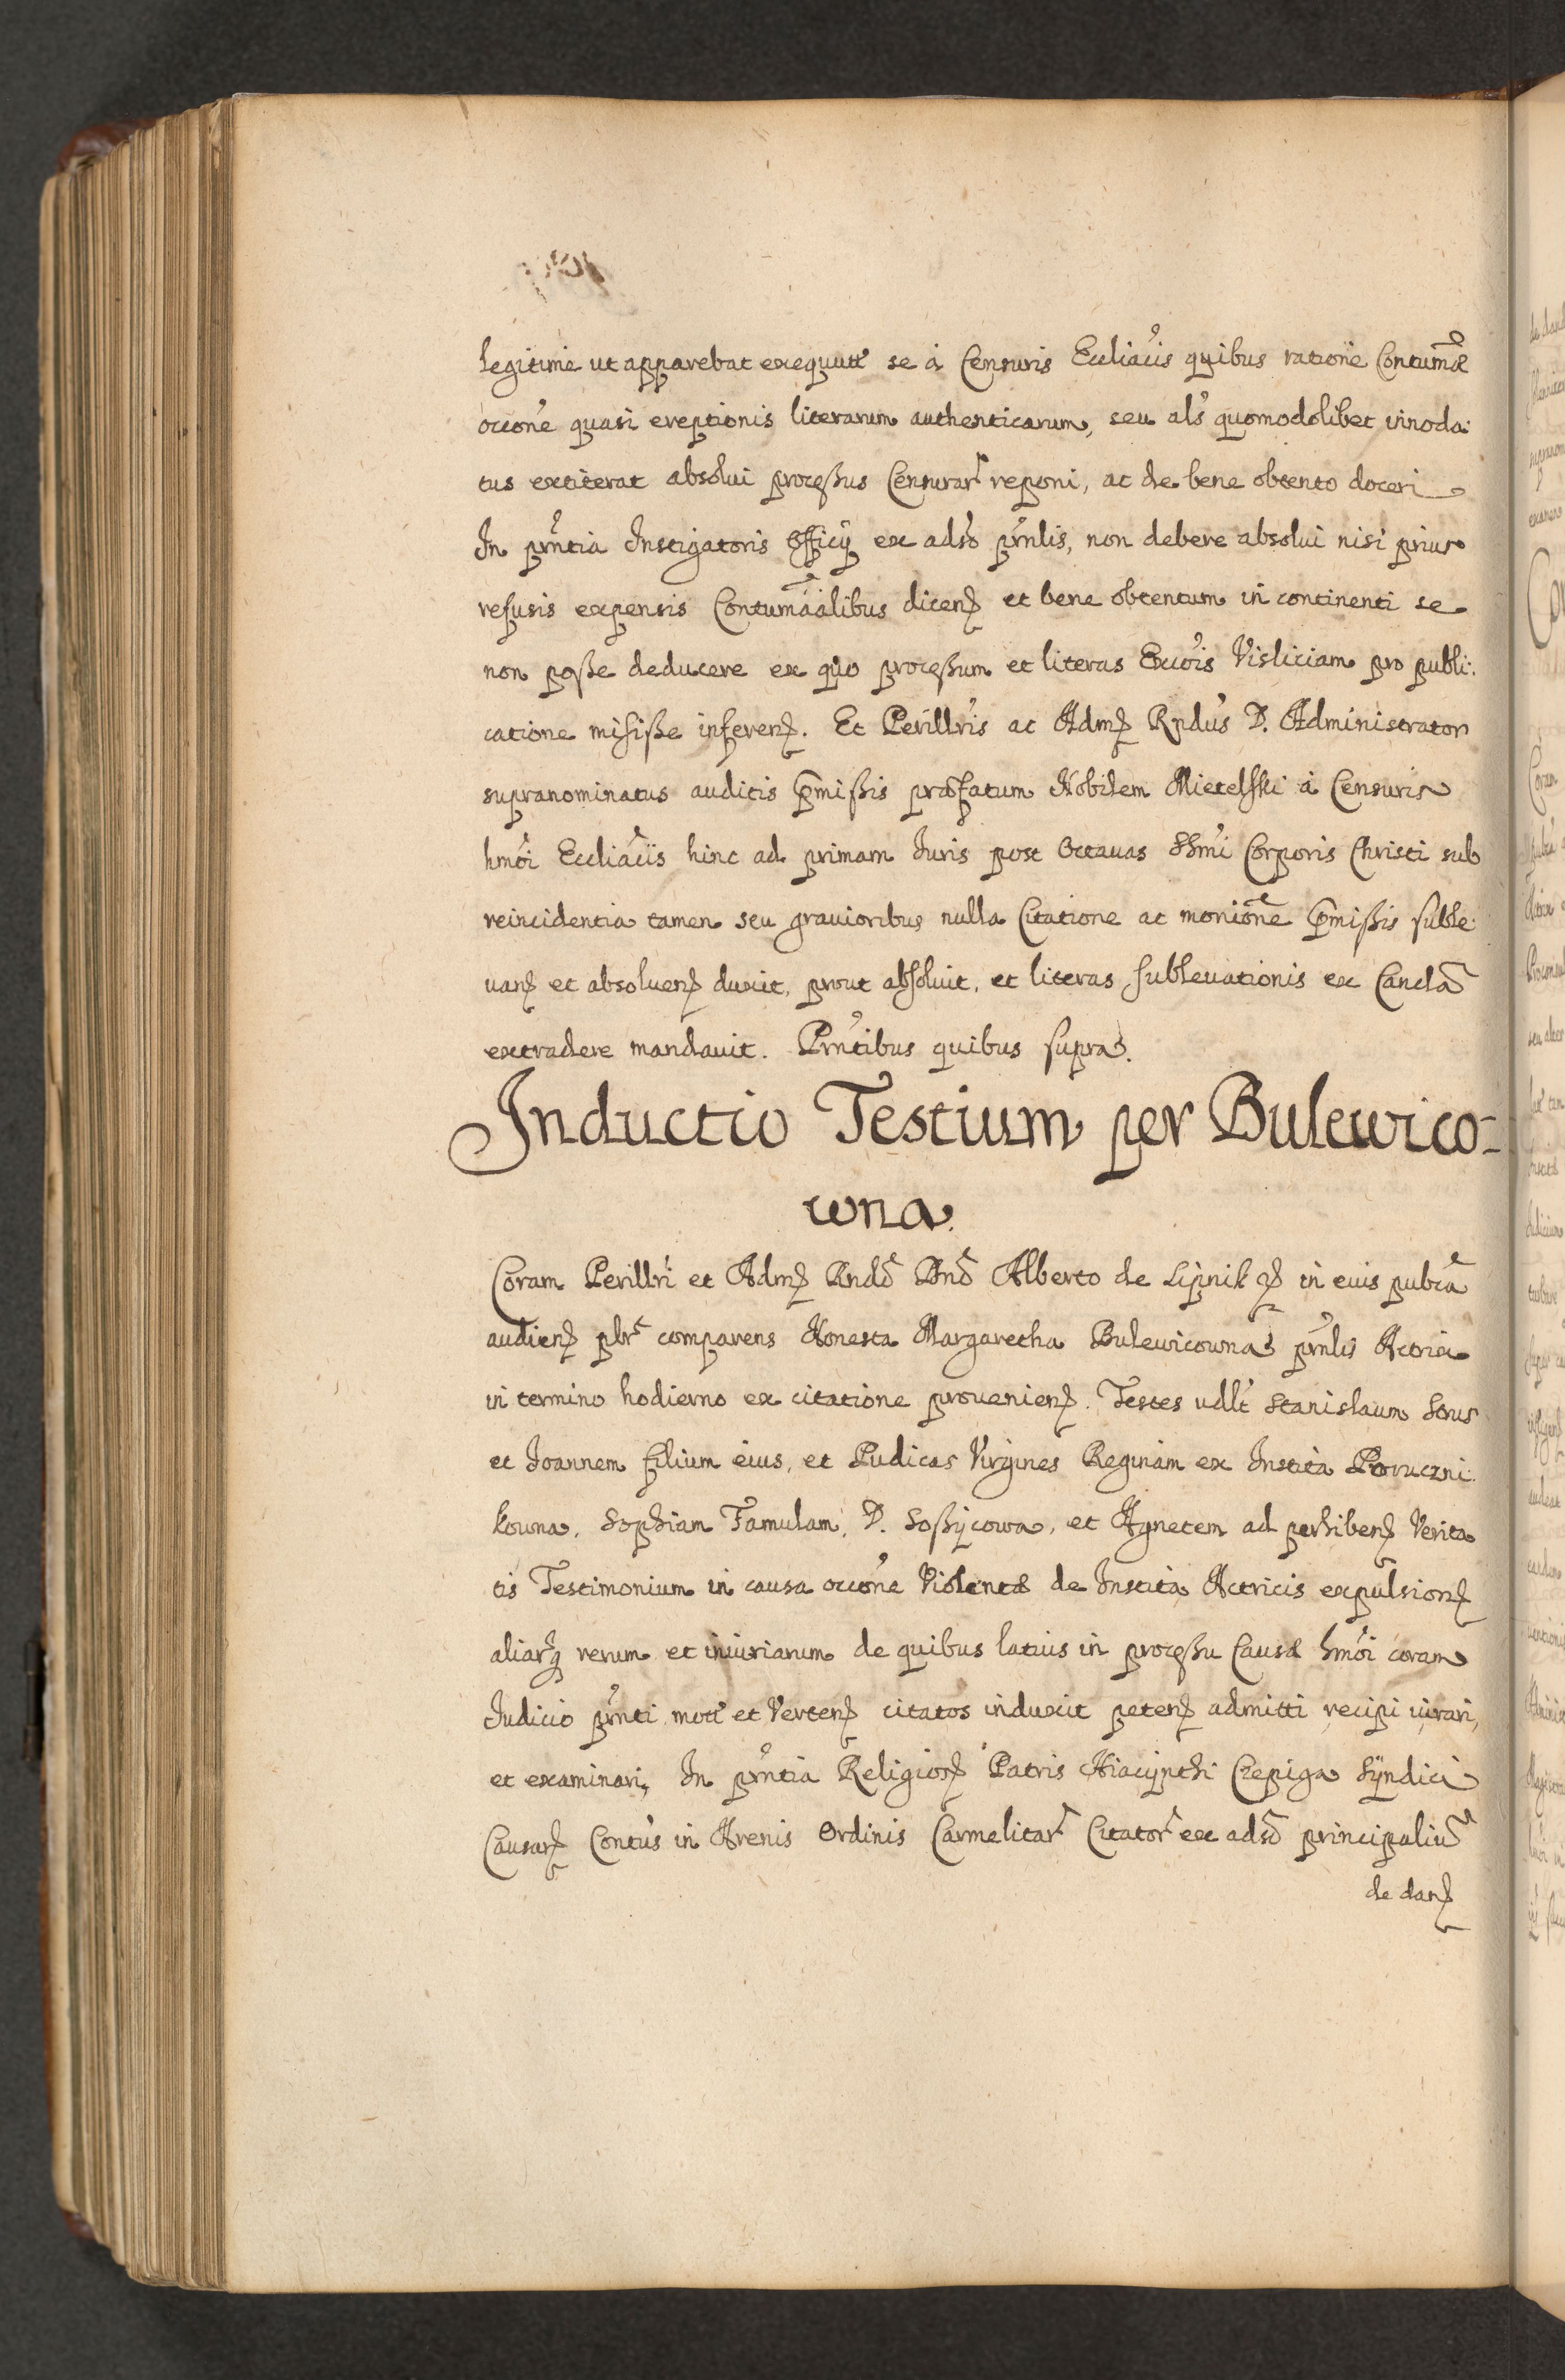 legitime ut apparebat exequutt se à Censuris Eccliacis quibus ratione Contumae
occone quasi ereptionis literarum authenticarum, seu als quomodolibet innoda:
tus extiterat absolui processus Censurar reponi, ac de bene obtento doceri
In pntia Instigatoris Officij ex adso pnlis, non debere absolui nisi prius
refusis expensis Contumaalibus dicen et bene obtentum in continenti se
non posse deducere ex quo processum et literas Exco͞is Visliciam pro publi:
catione misisse inferen. Et Perillris ac Adm Rndus D. Administrator
supranominatus auditis pmissis praefatum Nobilem Mietelski à Censuris
hmoi Eccliacis hinc ad primam Iuris post Octauas SSmi Corporis Christi sub
reincidentia tamen seu grauioribus nulla Citatione ac monione pmissis suble:
uan et absoluen duxit, prout absoluit, et literas subleuationis ex Cancla
extradere mandauit. Pntibus quibus supra.
Inductio Testium per Bulewico=
wna.
Coram Perillri et Adm Rndo Dno Alberto de Lipnik in euis pubca
audien plr comparens Honesta Margaretha Bulewicowna pnlis Actrix
in termino hodierno ex citatione prouenien. Testes udlt Stanislaum Sous
et Ioannem filium eius, et Pudicas Virgines Reginam ex Instita Poruczni:
kowna, Sophiam Famulam, D. Soßycowa, et Agnetem ad perhiben Verita
tis Testimonium in causa occone Violentae de Instita Actricis expulsion
aliarq rerum et iniuriarum de quibus latius in processu Causae hmoi coram
Iudicio pnti mott et Verten citatos induxit peten admitti recipi iurari,
et examinari, In pntia Religios Patris Hiacynthi Czepiga Syndici
Causar Contus in Arenis Ordinis Carmelitar Citator ex adso principaliu
de dan